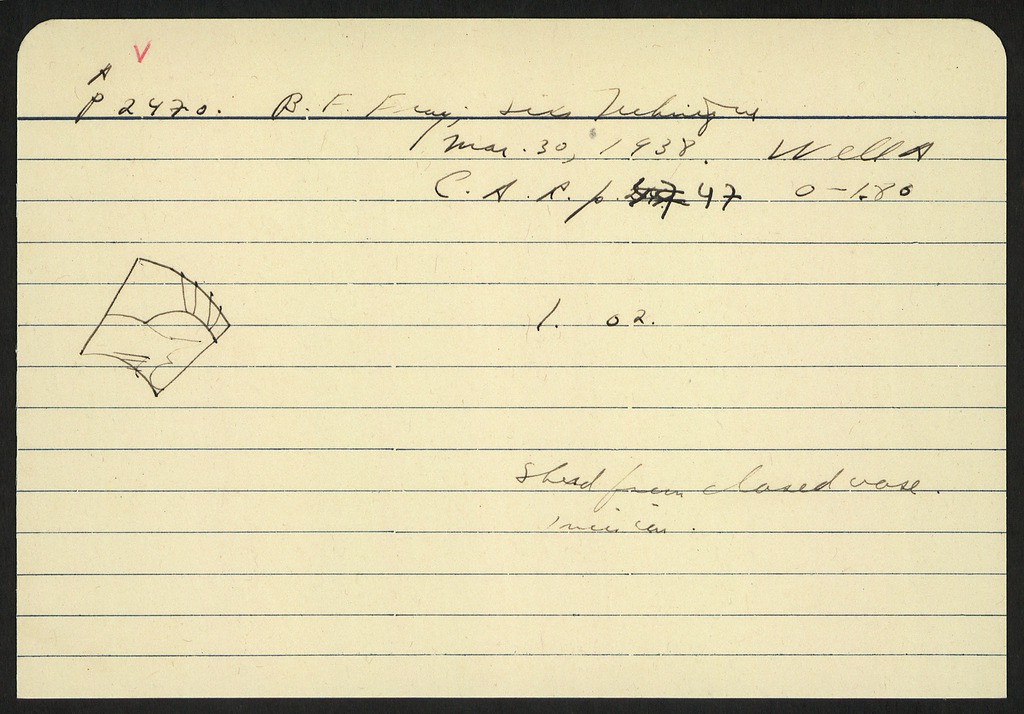 V
A
P 2470. B. F. Frag; Six's Technique
Mar. 30, 1938. Well A
C. A. R. p. 47 0-1.80
1. 02.
Sherd from closed vase.
Incision.